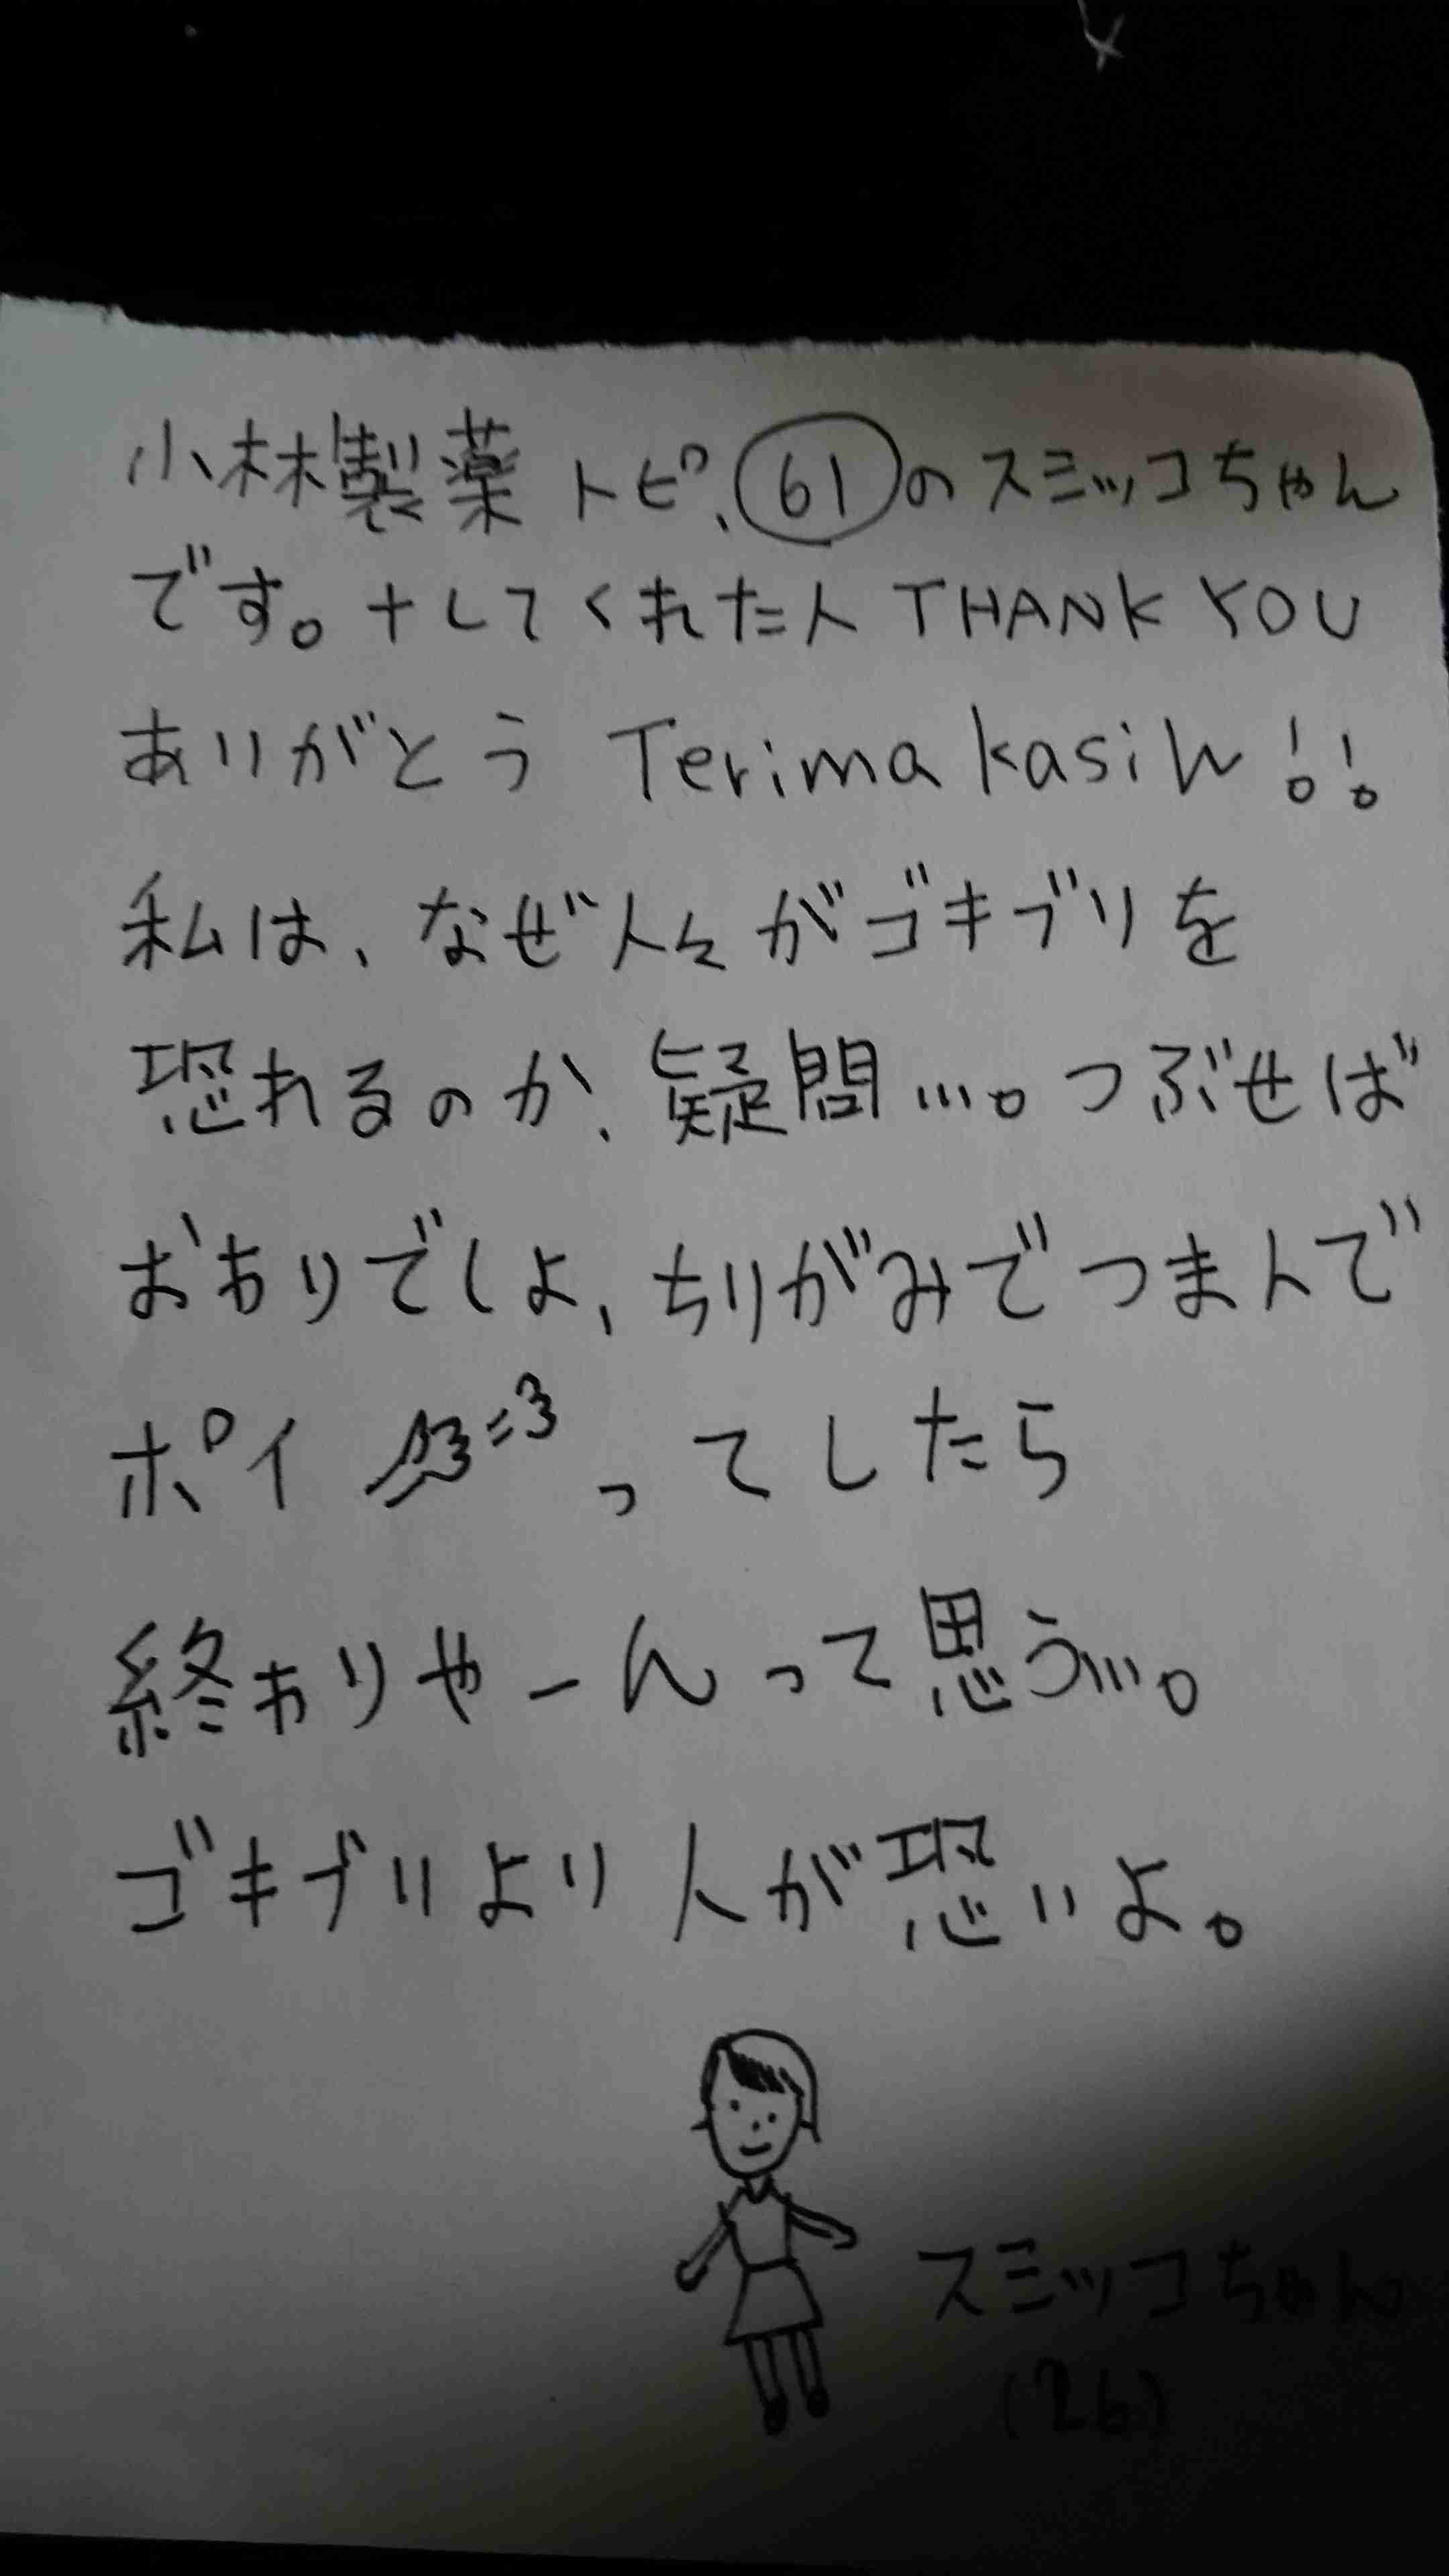 小林製薬トピ、61のスミッコちゃん
です。+してくれた人 THANK YOU
ありがとう Terima kasih!!
私は、なぜ人々がゴキブリを
恐れるのか、疑問…。つぶせば
おわりでしょ、ちりがみでつまんで
ポイ =3 ってしたら
終わりやーんって思う…。
ゴキブリより人が恐いよ。
スミッコちゃん
(26)